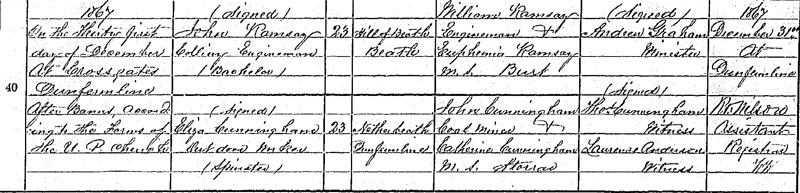 1867
On the Thirty first
day of December
At Crossgates
Dunfermline
After Banns, accord
ing to the Forms of
the U. P. Church
40
(Signed)
John Ramsay
Colliery Engineman
(Bachelor)
(Signed)
Eliza Cunningham
Out door Worker
(Spinster)
23
23
Hill of Beath
Beath
Netherbeath
Dunfermline
William Ramsay
Engineman
Euphemia Ramsay
M.S. Bust
John Cunningham
Coal Miner
Catherine Cunningham
M.S. Storrar
(Signed)
Andrew Graham
Minister
(Signed)
Thos Cunningham
Witness
Laurence Anderson
Witness
1867
December 31st
At
Dunfermline
Assistant
Registrar